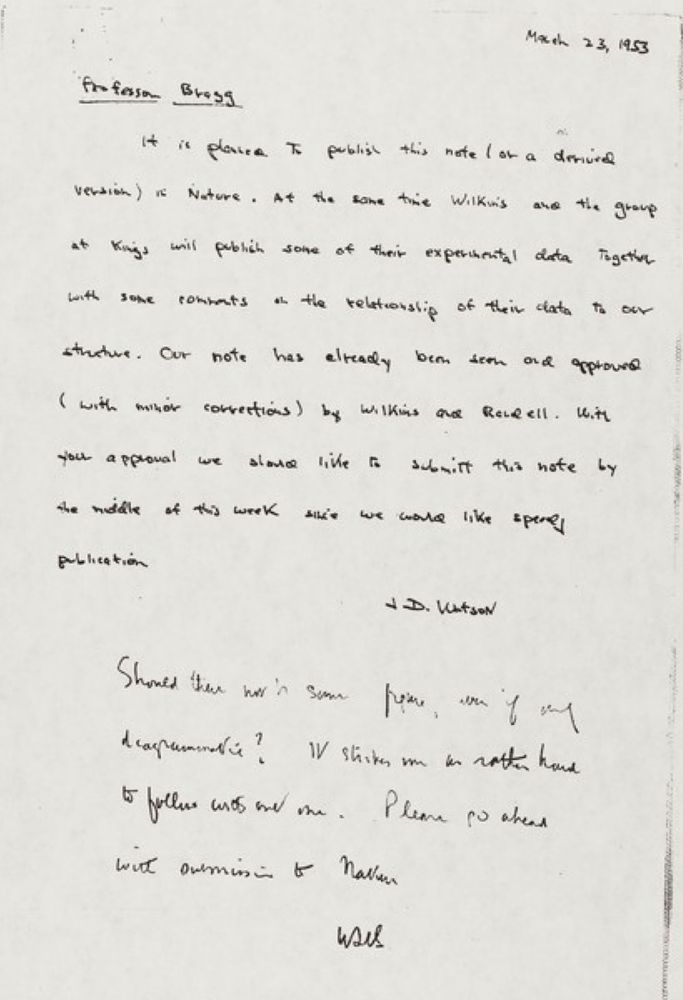 March 23, 1953
Professor Bragg
It is planned to publish this note (or a derived
version) in Nature. At the same time Wilkins and the group
at Kings will publish some of their experimental data together
with some comments on the relationship of their data to our
structure. Our note has already been seen and approved
(with minor corrections) by Wilkins and Randell. With
your approval we should like to submitt this note by
the middle of this week since we would like speedy
publication
J D. Watson
Should there not be some figure, even if only
diagrammatic? It strikes me as rather hard
to follow without one. Please go ahead
with submission to Nature
WLB